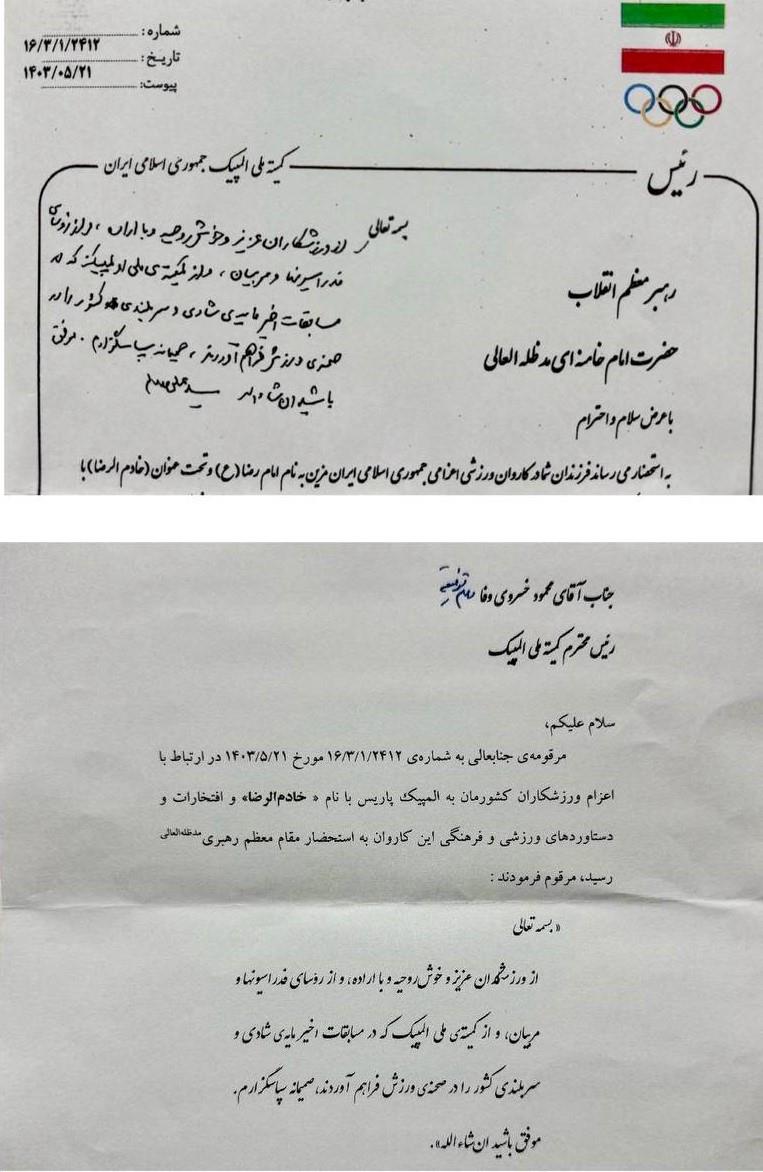 شماره:
۱۶/۳/۱/۲۴۱۲
تاریخ:
۱۴۰۳/۰۵/۲۱
پیوست:
رئیس
کمیته ملی المپیک جمهوری اسلامی ایران
بسمه تعالی
از ورزشکاران عزیز و خوش روحیه و با اراده، و از رؤسای
فدراسیونها و مربیان، و از کمیته‌ی ملی المپیک که در
مسابقات اخیر مایه‌ی شادی و سربلندی کشور را در
صحنه‌ی ورزش فراهم آوردند، صمیمانه سپاسگزارم. موفق
باشید ان‌شاءالله
رهبر معظم انقلاب
حضرت امام خامنه ای مدظله العالی
با عرض سلام و احترام
به استحضار می رساند فرزندان شما در کاروان ورزشی اعزامی جمهوری اسلامی ایران مزین به نام امام رضا (ع) و تحت عنوان (خادم الرضا) با
جناب آقای محمود خسروی وفا دام توفیقه
رئیس محترم کمیته ملی المپیک
سلام علیکم،
مرقومه‌ی جنابعالی به شماره‌ی ۱۶/۳/۱/۲۴۱۲ مورخ ۱۴۰۳/۵/۲۱ در ارتباط با
اعزام ورزشکاران کشورمان به المپیک پاریس با نام « خادم‌الرضا» و افتخارات و
دستاوردهای ورزشی و فرهنگی این کاروان به استحضار مقام معظم رهبری مدظله‌العالی
رسید، مرقوم فرمودند :
« بسمه تعالی
از ورزشکاران عزیز و خوش‌روحیه و با اراده، و از رؤسای فدراسیونها و
مربیان، و از کمیته‌ی ملی المپیک که در مسابقات اخیر مایه‌ی شادی و
سربلندی کشور را در صحنه‌ی ورزش فراهم آوردند، صمیمانه سپاسگزارم.
موفق باشید ان شاء الله».